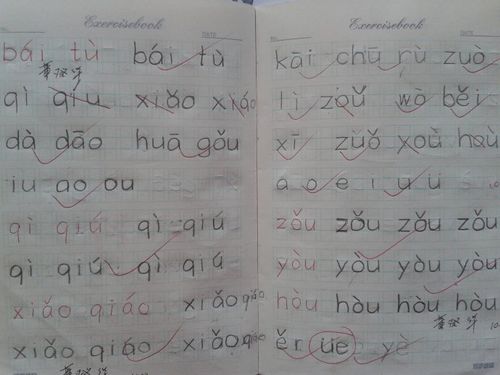 Exercisebook
DATE
bái tù bái tù
qì qiu xiǎo xiáo
dà dāo huā gǒu
iu ao ou
qì qiú qì qiú
qì qiú qì qiú
xiǎo qiáo xiǎo qiáo
xiǎo qiáo xiǎo qiáo
Exercisebook
DATE
kāi chū rù zuò
lì zǒu wò běi
xī zuǒ yòu hòu
a o e i u ü
zǒu zǒu zǒu zǒu
yòu yòu yòu yòu
hòu hòu hòu hòu
ěr üe yè